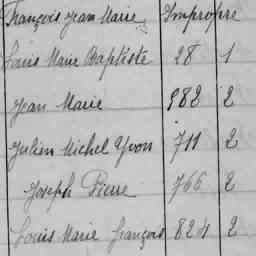 François Jean Marie Impropre
Louis Marie Baptiste 28 1
Jean Marie 982 2
Julien Michel Yvon 711 2
Joseph Pierre 766 2
Louis Marie françois 824 2